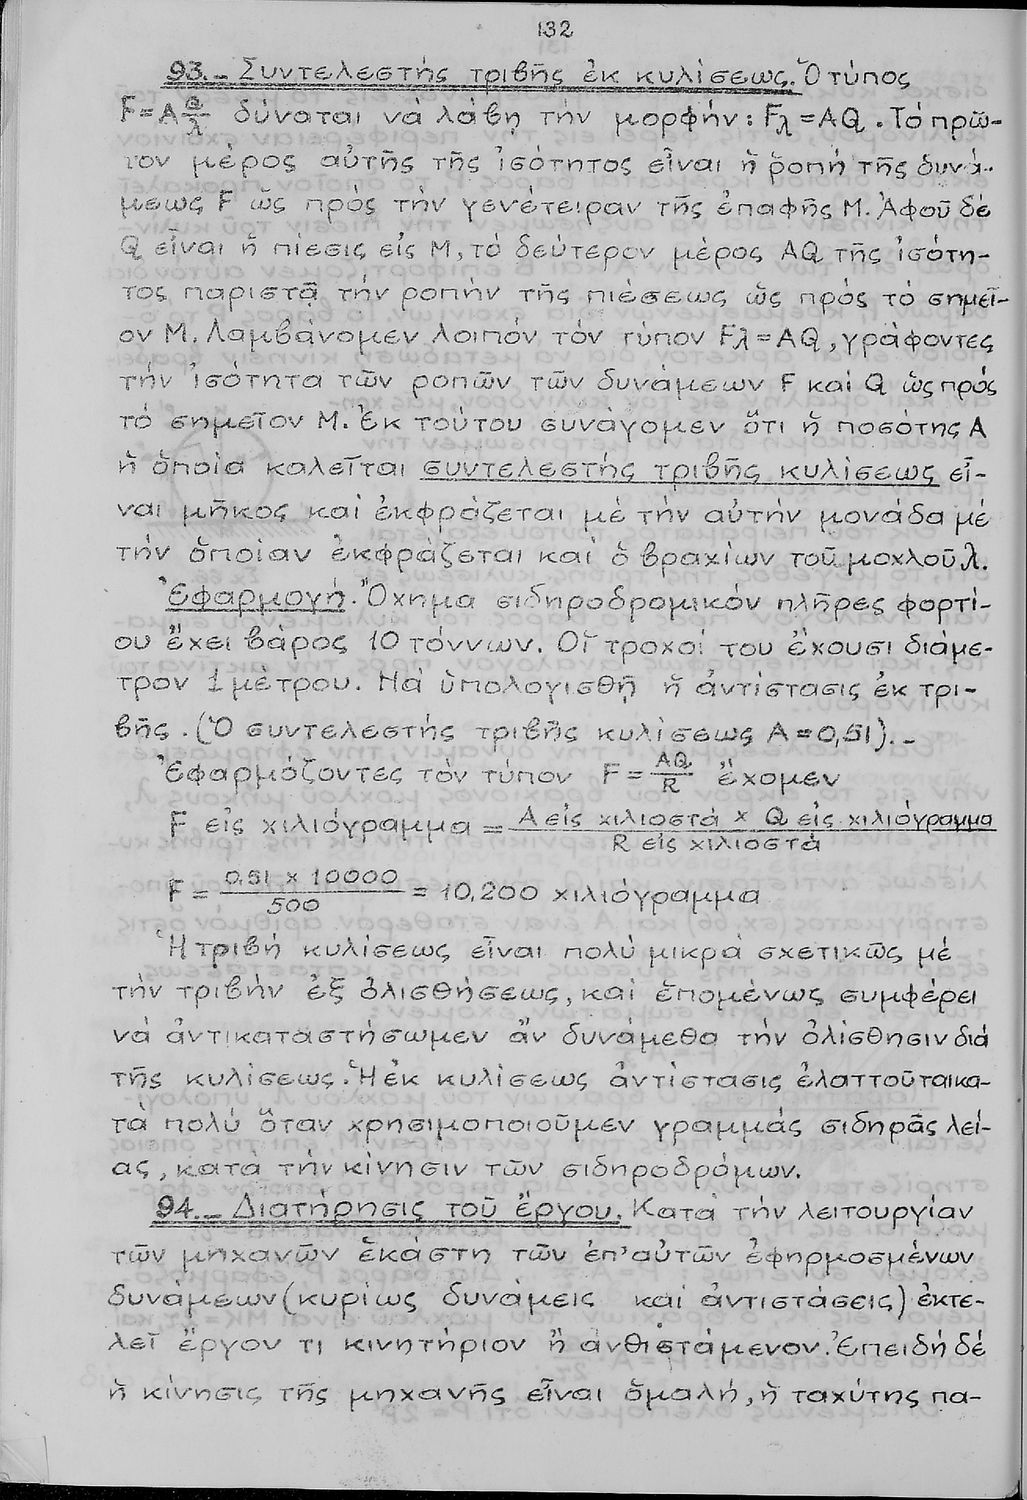 132
93.- Συντελεστής τριβῆς ἐκ κυλίσεως. Ὁ τύπος
F=A Q/λ δύναται νά λάβῃ τήν μορφήν: Fλ=AQ. Τό πρῶ-
τον μέρος αὐτῆς τῆς ἰσότητος εἶναι ἡ ῥοπή τῆς δυνά-
μεως F ὡς πρός τήν γενέτειραν τῆς ἐπαφῆς Μ. Ἀφοῦ δέ
Q εἶναι ἡ πίεσις εἰς Μ, τό δεύτερον μέρος AQ τῆς ἰσότη-
τος παριστᾷ τήν ροπήν τῆς πιέσεως ὡς πρός τό σημεῖ-
ον Μ. Λαμβάνομεν λοιπόν τόν τύπον Fλ=AQ, γράφοντες
τήν ἰσότητα τῶν ροπῶν τῶν δυνάμεων F καί Q ὡς πρός
τό σημεῖον Μ. Ἐκ τούτου συνάγομεν ὅτι ἡ ποσότης Α
ἡ ὁποία καλεῖται συντελεστής τριβῆς κυλίσεως εἶ-
ναι μῆκος καί ἐκφράζεται μέ τήν αὐτήν μονάδα μέ
τήν ὁποίαν ἐκφράζεται καί ὁ βραχίων τοῦ μοχλοῦ λ.
Ἐφαρμογή. Ὄχημα σιδηροδρομικόν πλῆρες φορτί-
ου ἔχει βάρος 10 τόννων. Οἱ τροχοί του ἔχουσι διάμε-
τρον 1 μέτρου. Νά ὑπολογισθῇ ἡ ἀντίστασις ἐκ τρι-
βῆς. (Ὁ συντελεστής τριβῆς κυλίσεως Α=0,51).-
Ἐφαρμόζοντες τόν τύπον F = AQ/R ἔχομεν
F εἰς χιλιόγραμμα = Α εἰς χιλιοστά x Q εἰς χιλιόγραμμα
R εἰς χιλιοστά
F = 0,51 x 10000/500 = 10,200 χιλιόγραμμα
Ἡ τριβή κυλίσεως εἶναι πολύ μικρά σχετικῶς μέ
τήν τριβήν ἐξ ὀλισθήσεως, καί ἑπομένως συμφέρει
νά ἀντικαταστήσωμεν ἄν δυνάμεθα τήν ὀλίσθησιν διά
τῆς κυλίσεως. Ἡ ἐκ κυλίσεως ἀντίστασις ἐλαττοῦται κα-
τά πολύ ὅταν χρησιμοποιοῦμεν γραμμάς σιδηρᾶς λεί-
ας, κατά τήν κίνησιν τῶν σιδηροδρόμων.
94.- Διατήρησις τοῦ ἔργου. Κατά τήν λειτουργίαν
τῶν μηχανῶν ἑκάστη τῶν ἐπ' αὐτῶν ἐφηρμοσμένων
δυνάμεων (κυρίως δυνάμεις καί ἀντιστάσεις) ἐκτε-
λεῖ ἔργον τι κινητήριον ἤ ἀνθιστάμενον. Ἐπειδή δέ
ἡ κίνησις τῆς μηχανῆς εἶναι ὁμαλή, ἡ ταχύτης πα-